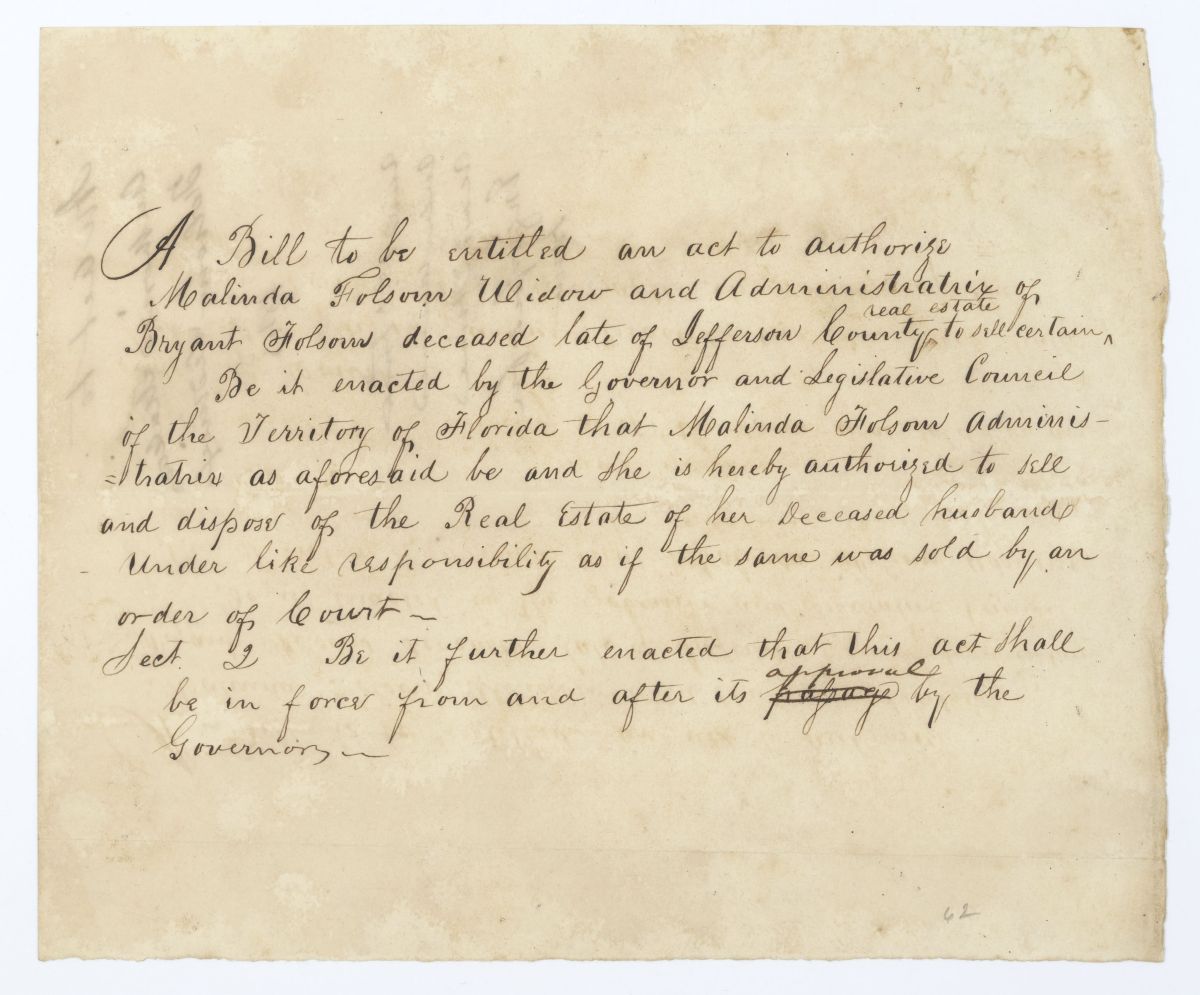 A Bill to be entitled an act to authorize
Malinda Folsom Widow and Administratrix of
real estate
Bryant Folsom deceased late of Jefferson County to sell certain ^
Be it enacted by the Governor and Legislative Council
of the Territory of Florida that Malinda Folsom Adminis-
=tratrix as aforesaid be and She is hereby authorized to sell
and dispose of the Real Estate of her Deceased husband
Under like responsibility as if the same was sold by an
order of Court —
Sect. 2 Be it further enacted that this act Shall
approval
be in force from and after its by the
Governor, —
62